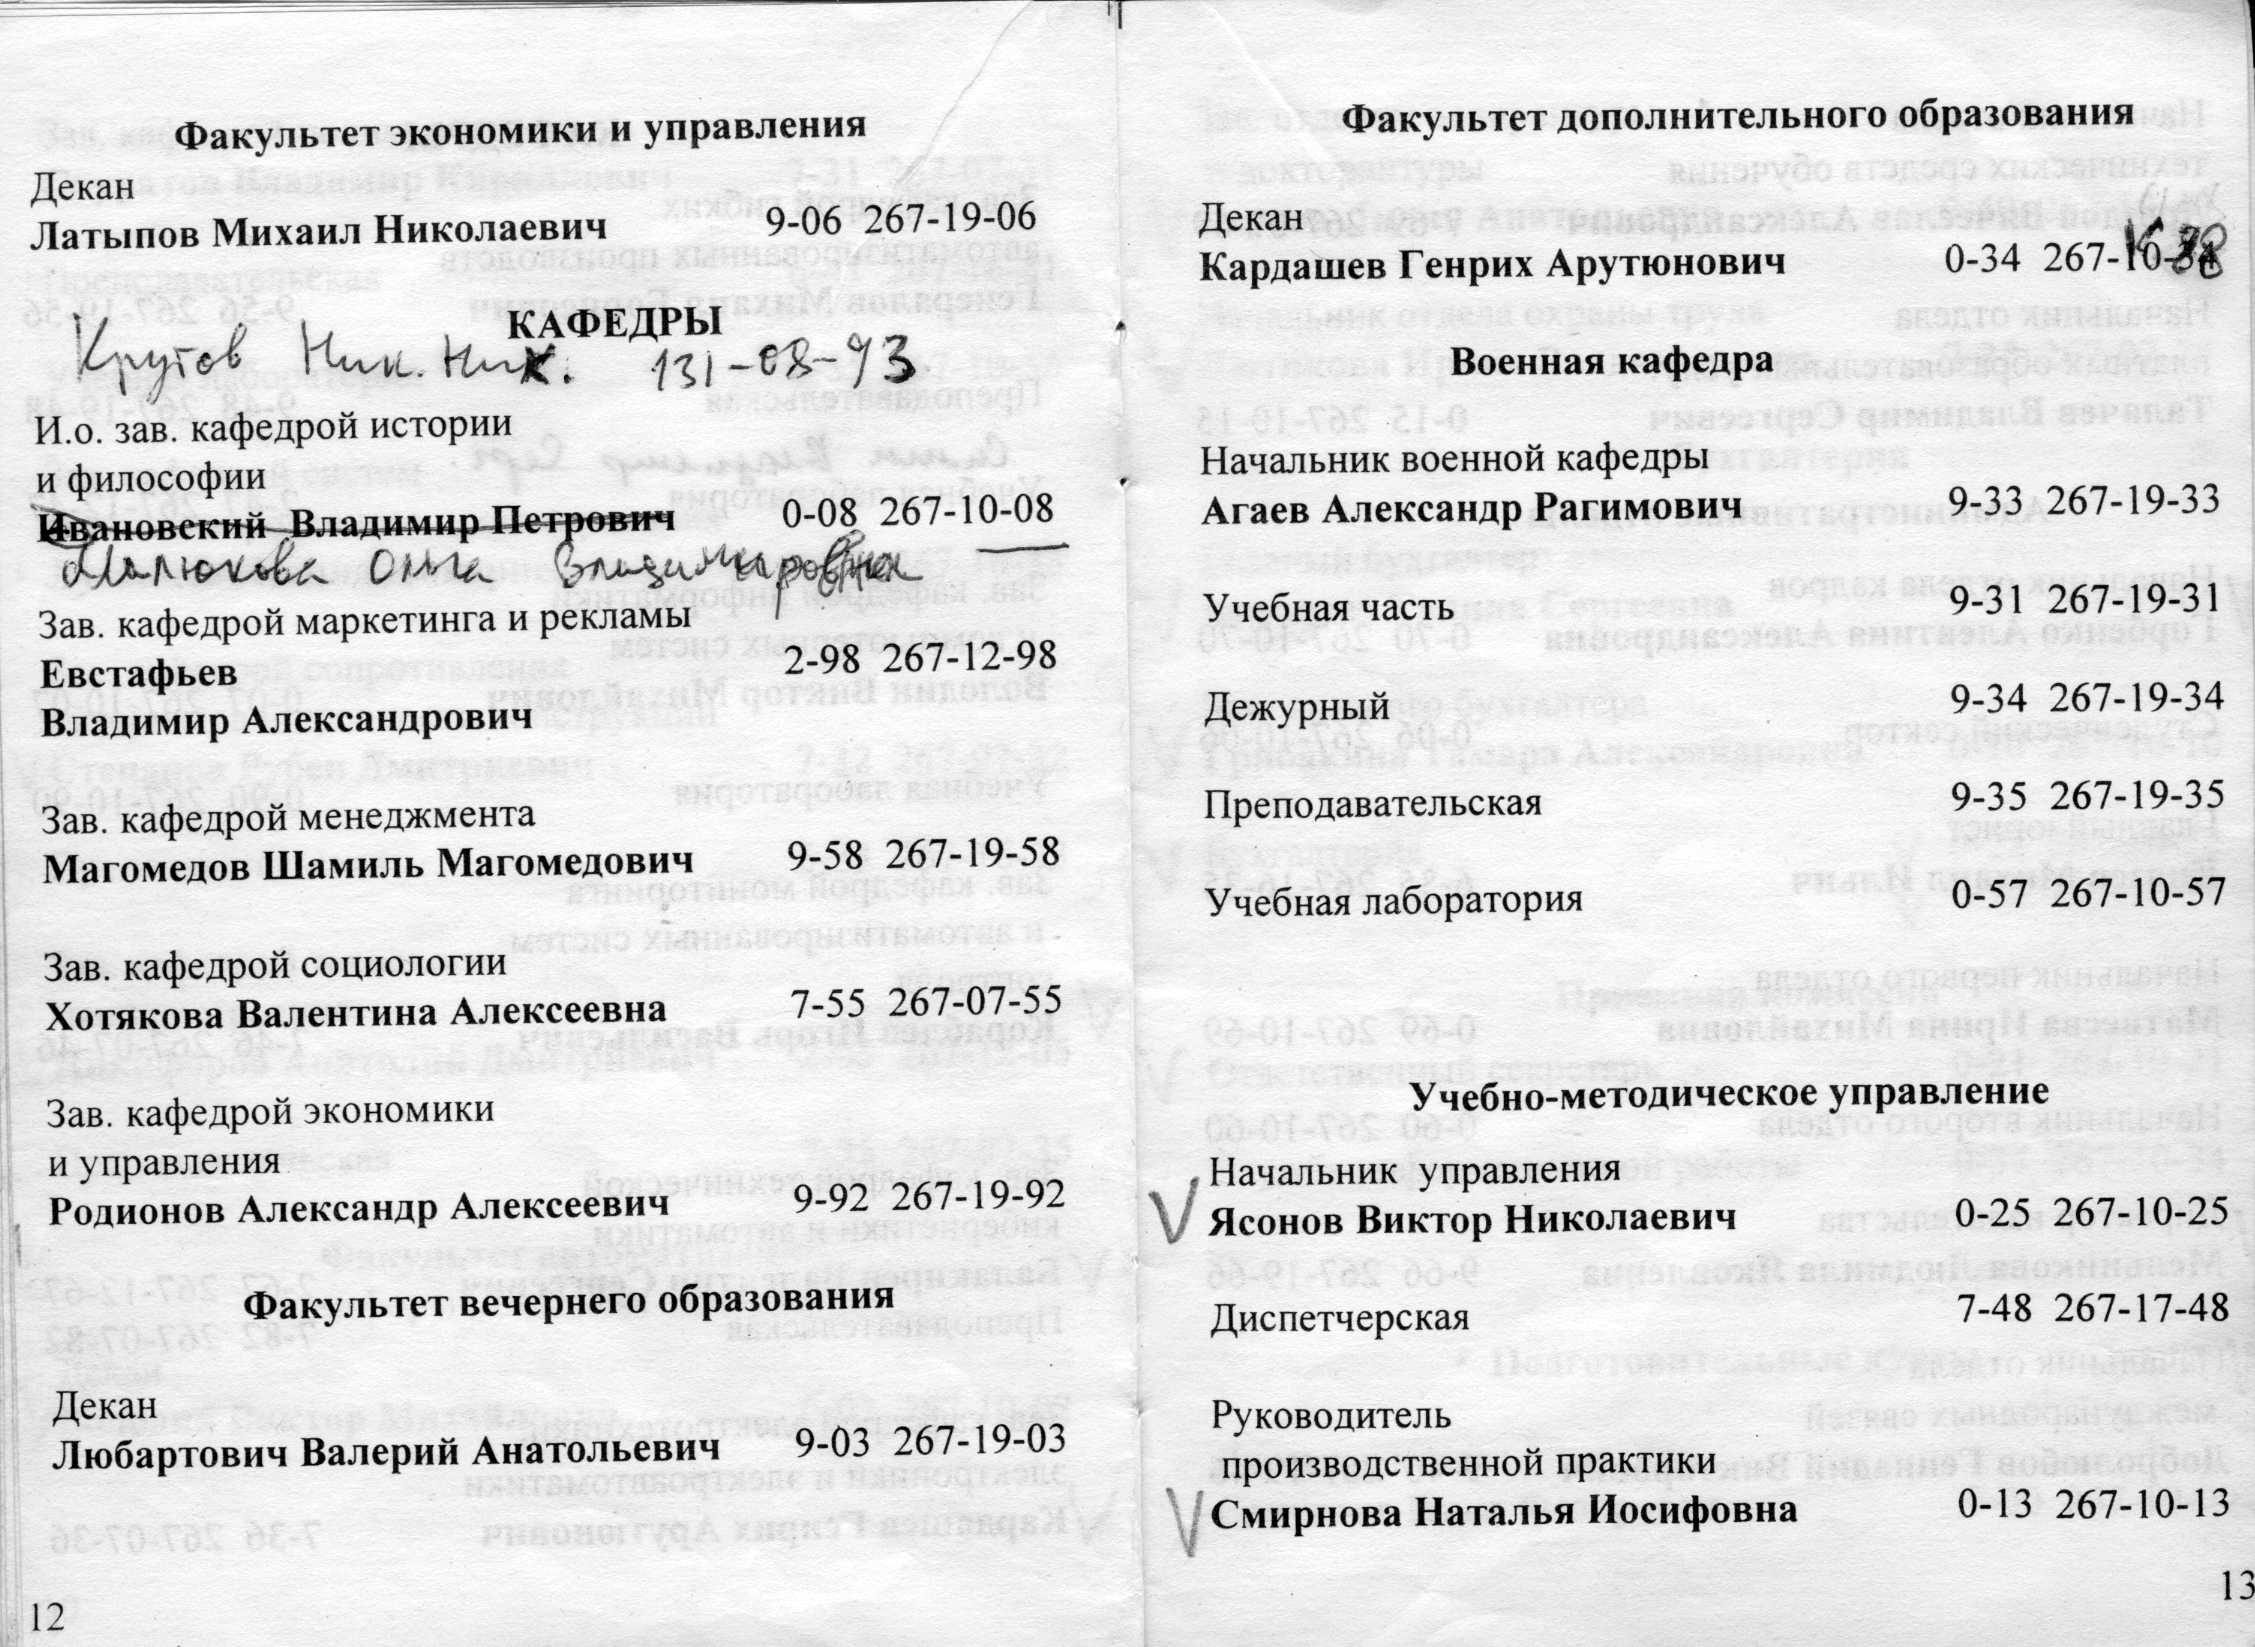 Факультет экономики и управления
Декан
Латыпов Михаил Николаевич 9-06 267-19-06
КАФЕДРЫ
Крутов Ник. Ник. 131-08-93
И.о. зав. кафедрой истории
и философии
Ивановский Владимир Петрович 0-08 267-10-08
Малюкова Ольга Владимировна
Зав. кафедрой маркетинга и рекламы
Евстафьев 2-98 267-12-98
Владимир Александрович
Зав. кафедрой менеджмента
Магомедов Шамиль Магомедович 9-58 267-19-58
Зав. кафедрой социологии
Хотякова Валентина Алексеевна 7-55 267-07-55
Зав. кафедрой экономики
и управления
Родионов Александр Алексеевич 9-92 267-19-92
Факультет вечернего образования
Декан
Любартович Валерий Анатольевич 9-03 267-19-03
12
Факультет дополнительного образования
Декан
Кардашев Генрих Арутюнович 0-34 267-10-34
Военная кафедра
Начальник военной кафедры
Агаев Александр Рагимович 9-33 267-19-33
Учебная часть 9-31 267-19-31
Дежурный 9-34 267-19-34
Преподавательская 9-35 267-19-35
Учебная лаборатория 0-57 267-10-57
Учебно-методическое управление
Начальник управления
V Ясонов Виктор Николаевич 0-25 267-10-25
Диспетчерская 7-48 267-17-48
Руководитель
производственной практики
V Смирнова Наталья Иосифовна 0-13 267-10-13
13